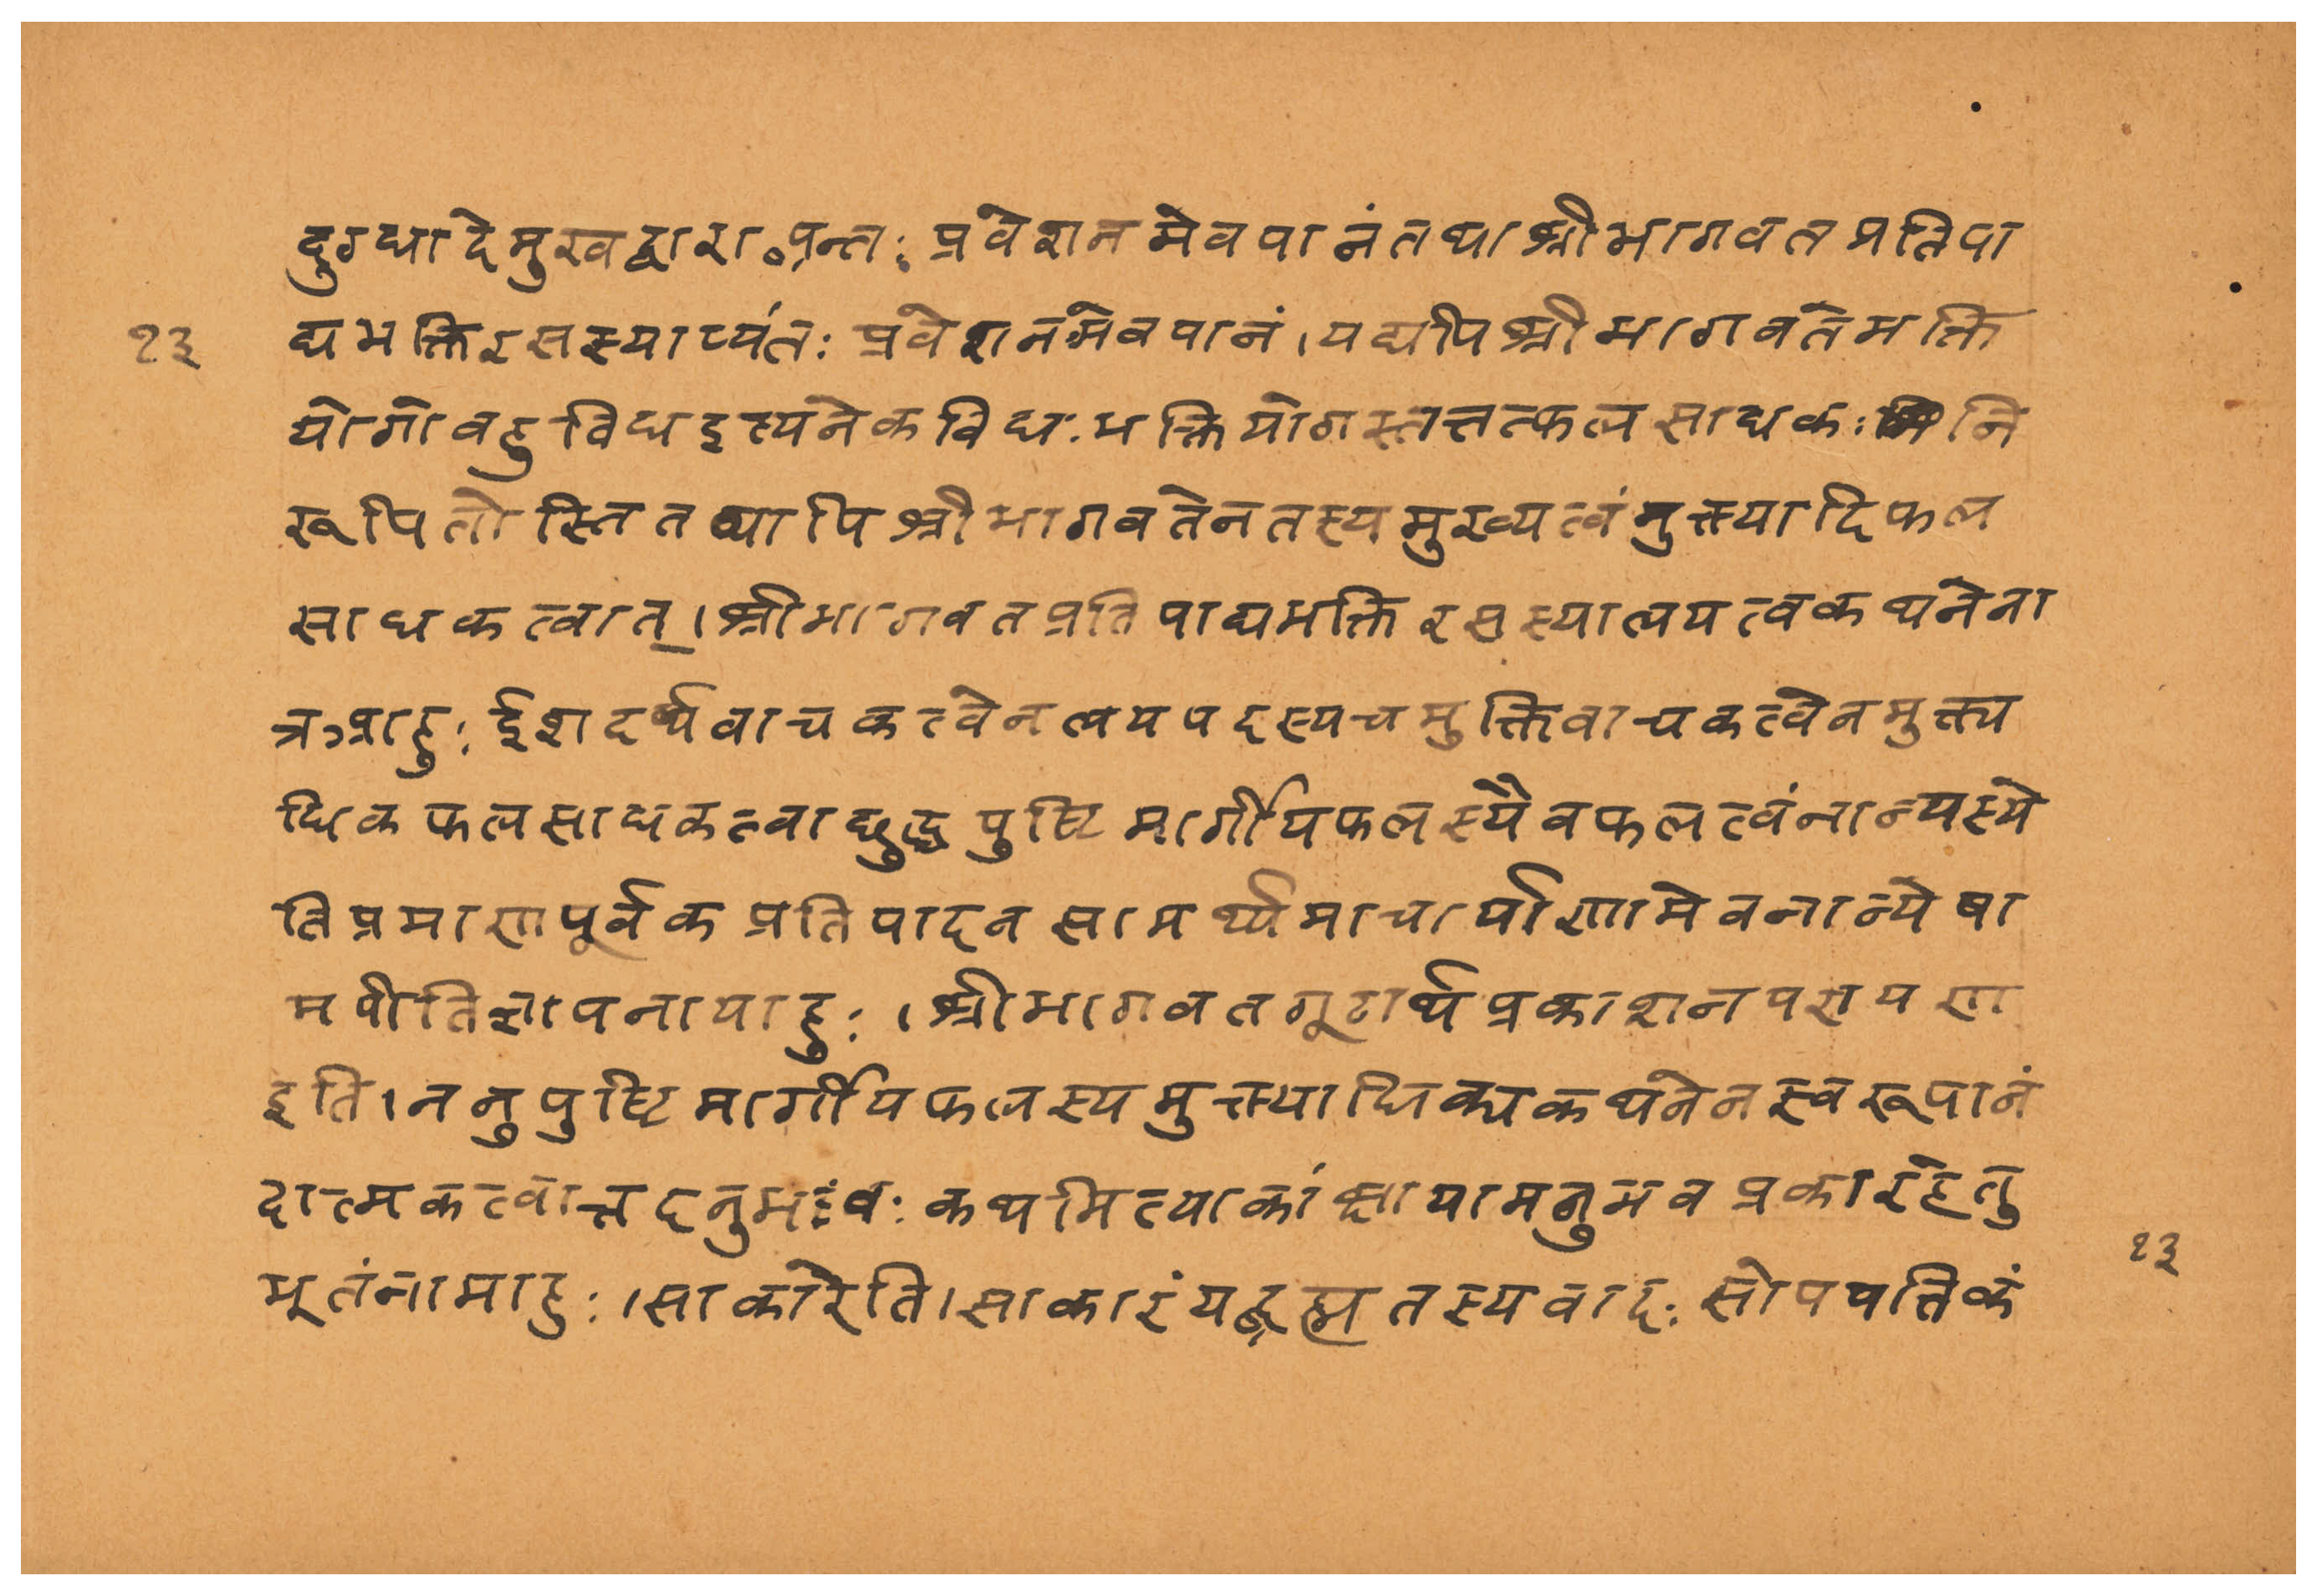 दुग्धादेमुखद्वारा॰न्तः प्रवेशनमेवपानंतथाश्रीभागवतप्रतिपा
१३
द्यभक्तिरसस्याप्यंतः प्रवेशनमेवपानं।यद्यपिश्रीभागवतेभक्ति
योगोवहुविधइत्यनेकविधःभक्तियोगस्तत्तत्फलसाधकः नि
रूपितोस्तितथापिश्रीभागवतेनतस्यमुख्यत्वंमुक्त्यादिफल
साधकत्वात्।श्रीभागवतप्रतिपाद्यभक्तिरसस्यालयत्वकथनेना
त्रऽप्राहुः ईशदर्थवाचकत्वेनलयपदस्यचमुक्तिवाचकत्वेनमुक्त्य
धिकफलसाधकत्वाछुद्धपुष्टिमार्गीयफलस्यैवफलत्वंनान्यस्ये
तिप्रमाणपूर्वकप्रतिपादनसामर्थ्यमाचार्याणामेवनान्येषा
मपीतिज्ञापनायाहुः।श्रीभागवतगूढार्थप्रकाशनपरायण
इति।ननुपुष्टिमार्गीयफलस्यमुक्त्याधिक्यकथनेनस्वरूपानं
दात्मकत्वात्तदनुभवः कथमित्याकांक्षायामनुभवप्रकारहेतु
१३
भूतंनामाहुः।साकारेति।साकारंयद्ब्रह्मतस्यवादः सोपपत्तिकं